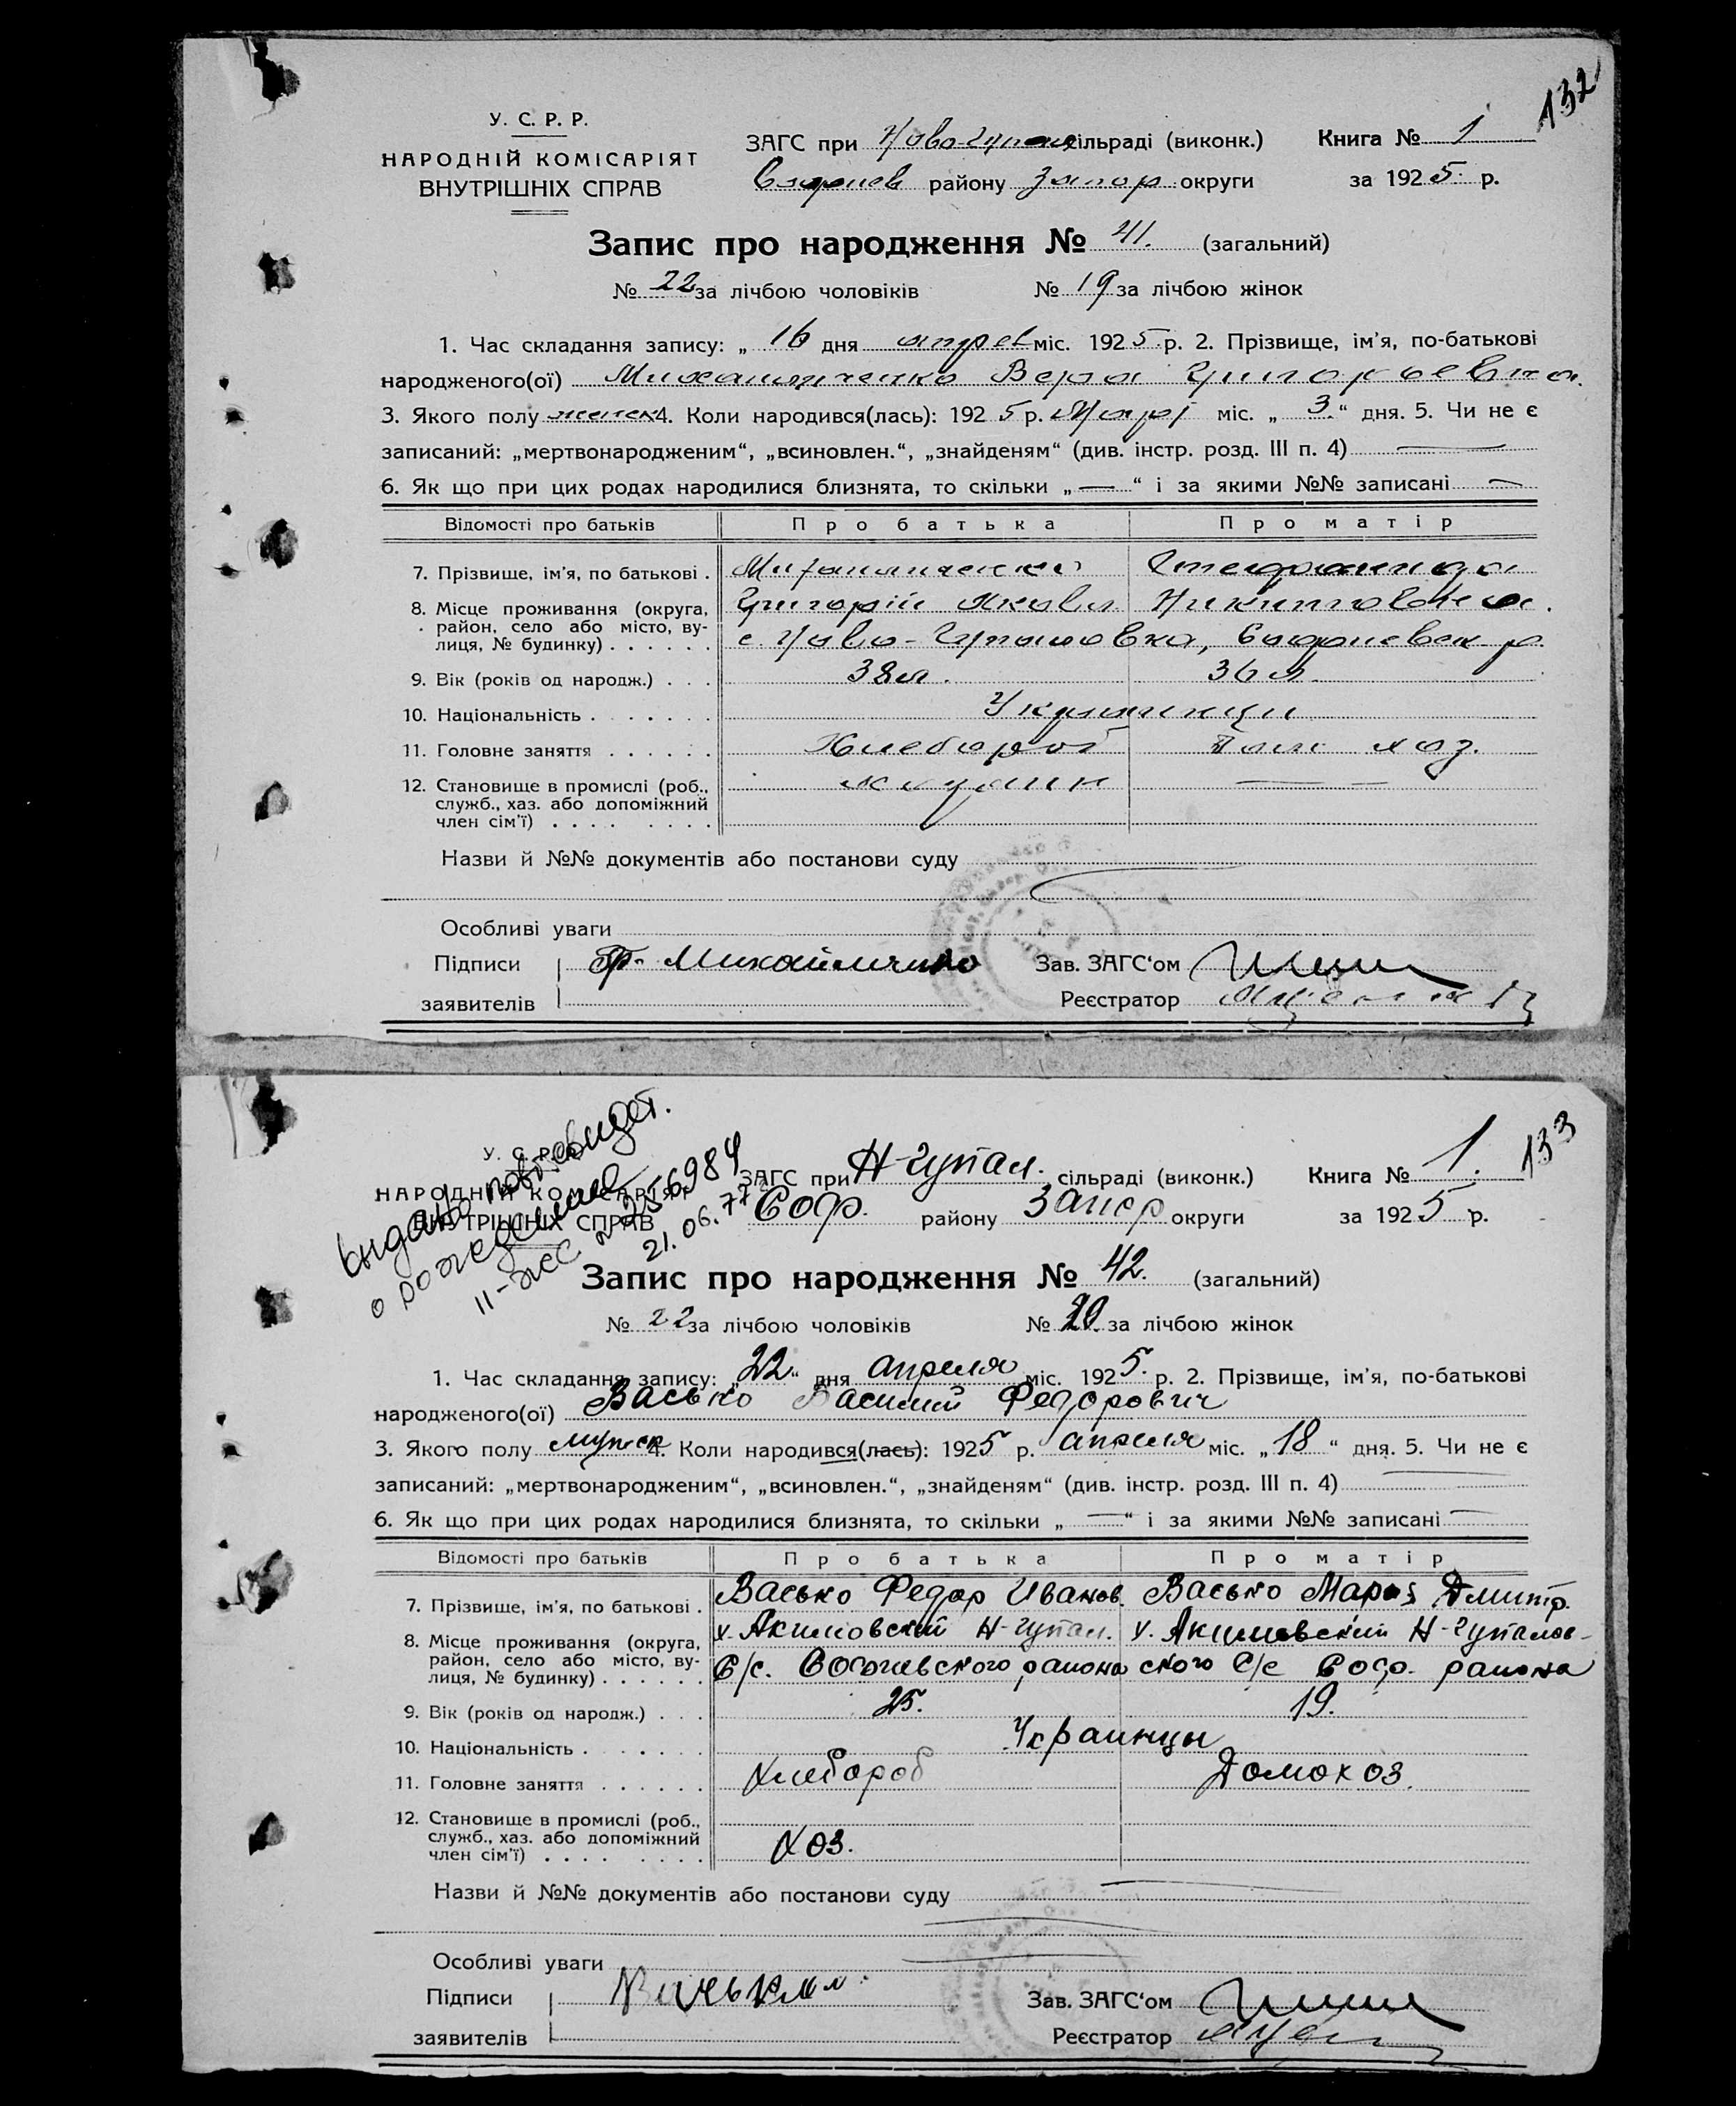 132
У. С. Р. Р.
НАРОДНІЙ КОМІСАРІЯТ
ВНУТРІШНІХ СПРАВ
ЗАГС при Ново-Гупал сільраді (виконк.) Книга № 1
Софиев району Запор. округи за 1925 р.
Запис про народження № 41. (загальний)
№ 22 за лічбою чоловіків № 19 за лічбою жінок
1. Час складання запису: „ 16 дня апрел міс. 1925 р. 2. Прізвище, ім'я, по-батькові
народженого(ої) Михайличенко Вера Григорьевна.
3. Якого полу женск 4. Коли народився(лась): 1925 р. Март міс. „ 3. “ дня. 5. Чи не є
записаний: „мертвонародженим“, „всиновлен.“, „знайденям“ (див. інстр. розд. III п. 4) —
6. Як що при цих родах народилися близнята, то скільки „ — “ і за якими №№ записані —
Відомості про батьків Про батька Про матір
7. Прізвище, ім'я, по батькові . Михайличенко Стефанида
8. Місце проживання (округа, Григорій Яковл Никитовна.
район, село або місто, ву- с. Ново-Гупаловка, Софиевск р.
лиця, № будинку) . . . . . .
9. Вік (років од народж.) . . . 38 л. 36 л.
10. Національність . . . . . . . Украинци
11. Головне заняття . . . . . . Хлебороб Дом хоз.
12. Становище в промислі (роб., —
служб., хаз. або допоміжний
член сім'ї) . . . . . . . .
Назви й №№ документів або постанови суду
Особливі уваги
Підписи Гр. Михайличенко Зав. ЗАГС'ом
заявителів Реєстратор
133
У. С. Р. Р.
НАРОДНІЙ КОМІСАРІЯТ
ВНУТРІШНІХ СПРАВ
Выдано повт. свидет.
о рождении
II-ЖС № 256984
21.06.77г
ЗАГС при Н-Гупал. сільраді (виконк.) Книга № 1.
Соф. району Запор округи за 1925 р.
Запис про народження № 42. (загальний)
№ 22 за лічбою чоловіків № 20. за лічбою жінок
1. Час складання запису: „ 22 “ дня апреля міс. 1925. р. 2. Прізвище, ім'я, по-батькові
народженого(ої) Васько Василий Федорович
3. Якого полу мужск 4. Коли народився(лась): 1925 р. апреля міс. „ 18 “ дня. 5. Чи не є
записаний: „мертвонародженим“, „всиновлен.“, „знайденям“ (див. інстр. розд. III п. 4) —
6. Як що при цих родах народилися близнята, то скільки „ — “ і за якими №№ записані —
Відомості про батьків Про батька Про матір
7. Прізвище, ім'я, по батькові . Васько Федор Иванов. Васько Мария Дмитр.
8. Місце проживання (округа, х. Акимовский Н-Гупал. х. Акимовский Н-Гупалов-
район, село або місто, ву- С/с. Софиевского района ского С/с Соф. района
лиця, № будинку) . . . . . .
9. Вік (років од народж.) . . . 25. 19.
10. Національність . . . . . . . Украинцы
11. Головне заняття . . . . . . Хлебороб Домохоз.
12. Становище в промислі (роб.,
служб., хаз. або допоміжний Хоз.
член сім'ї) . . . . . . . .
Назви й №№ документів або постанови суду —
Особливі уваги —
Підписи Зав. ЗАГС'ом
заявителів Реєстратор